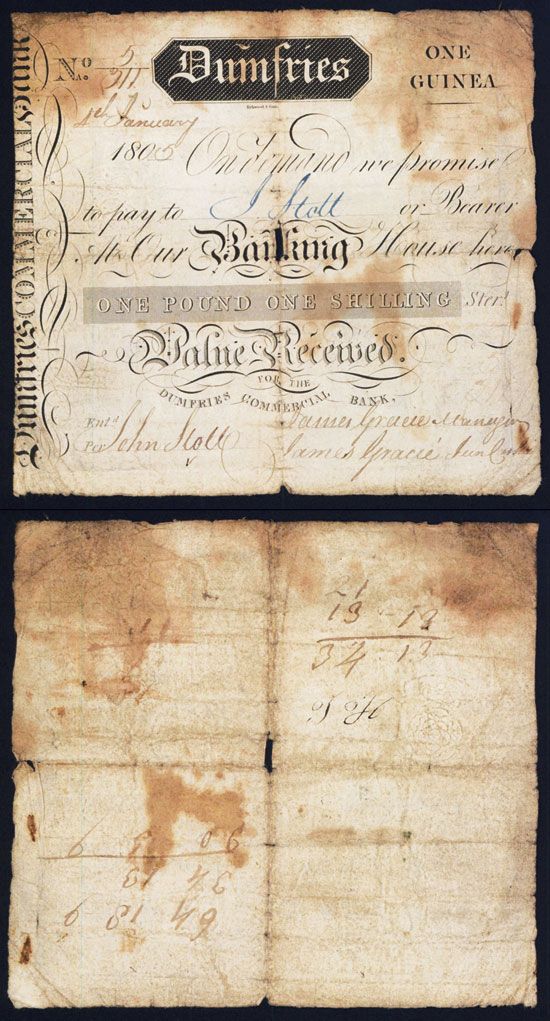 Dumfries COMMERCIAL Bank
No. 5/311
Dumfries
ONE
GUINEA
4th January
1805 On demand we promise
to pay to J Stott or Bearer
At Our Banking House here
ONE POUND ONE SHILLING Ster.
Value Received.
FOR THE
DUMFRIES COMMERCIAL BANK,
Entd.
Per John Stott
James Gracie Manager
James Gracie Jun
21
13 - 13
34 - 13
64 18 9
34 13
30 5 9